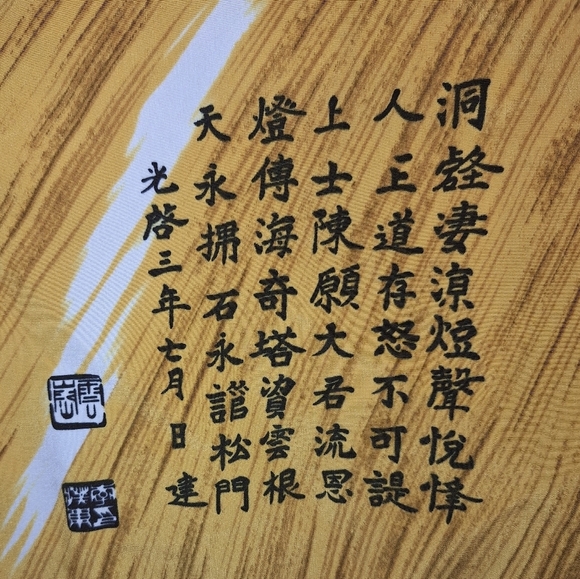 洞壑淒涼燈聲悅怿
人正道存怒不可諟
上士陳願大君流恩
燈傳海奇塔資雲根
天永拥石永謹松門
光啓三年七月日建